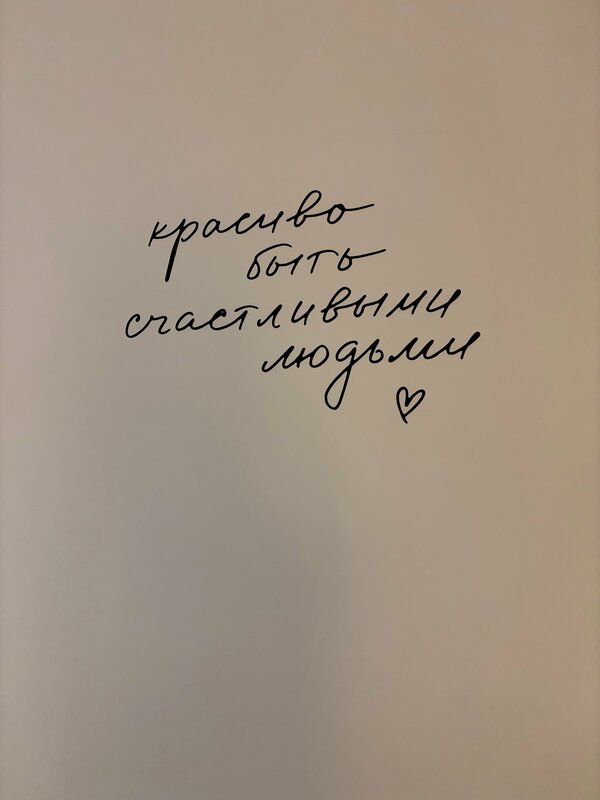 красиво
быть
счастливыми
людьми